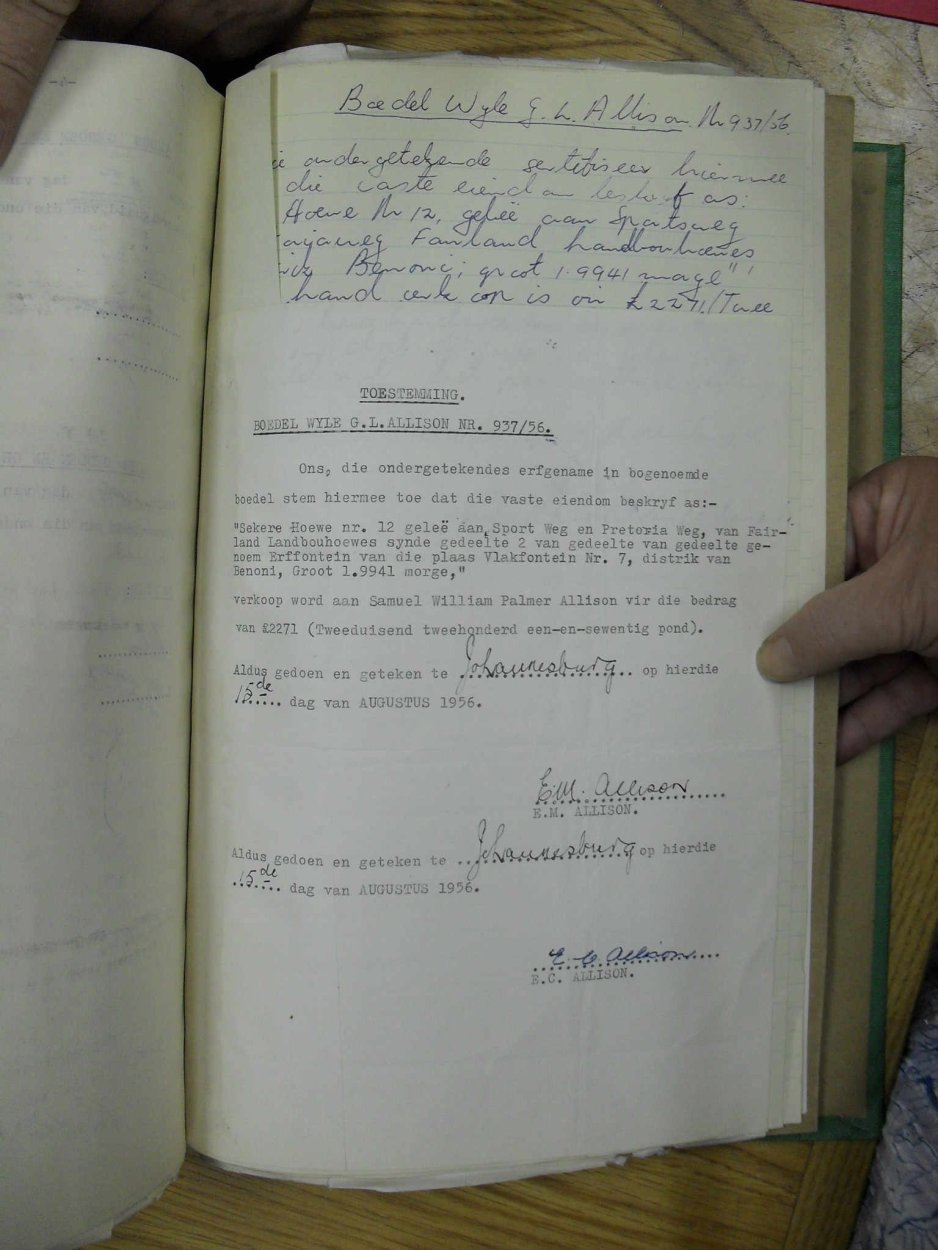 Boedel Wyle G. L. Allison Nr 937/56.
ondergetekende sertifiseer hiermee
die vaste eiendom beskryf as:
Hoewe Nr 12, geleë aan Sportsweg
Fairland
Benoni; groot 1.9941 morge"
hand op is vir £2271/Twee
TOESTEMMING.
BOEDEL WYLE G.L.ALLISON NR. 937/56.
Ons, die ondergetekendes erfgename in bogenoemde
boedel stem hiermee toe dat die vaste eiendom beskryf as:-
"Sekere Hoewe nr. 12 geleë aan Sport Weg en Pretoria Weg, van Fair-
land Landbouhoewes synde gedeelte 2 van gedeelte van gedeelte ge-
noem Erffontein van die plaas Vlakfontein Nr. 7, distrik van
Benoni, Groot 1.9941 morge,"
verkoop word aan Samuel William Palmer Allison vir die bedrag
van £2271 (Tweeduisend tweehonderd een-en-sewentig pond).
Aldus gedoen en geteken te Johannesburg op hierdie
15de dag van AUGUSTUS 1956.
E.M. Allison
E.M. ALLISON.
Aldus gedoen en geteken te Johannesburg op hierdie
15de dag van AUGUSTUS 1956.
E C Allison
E.C. ALLISON.